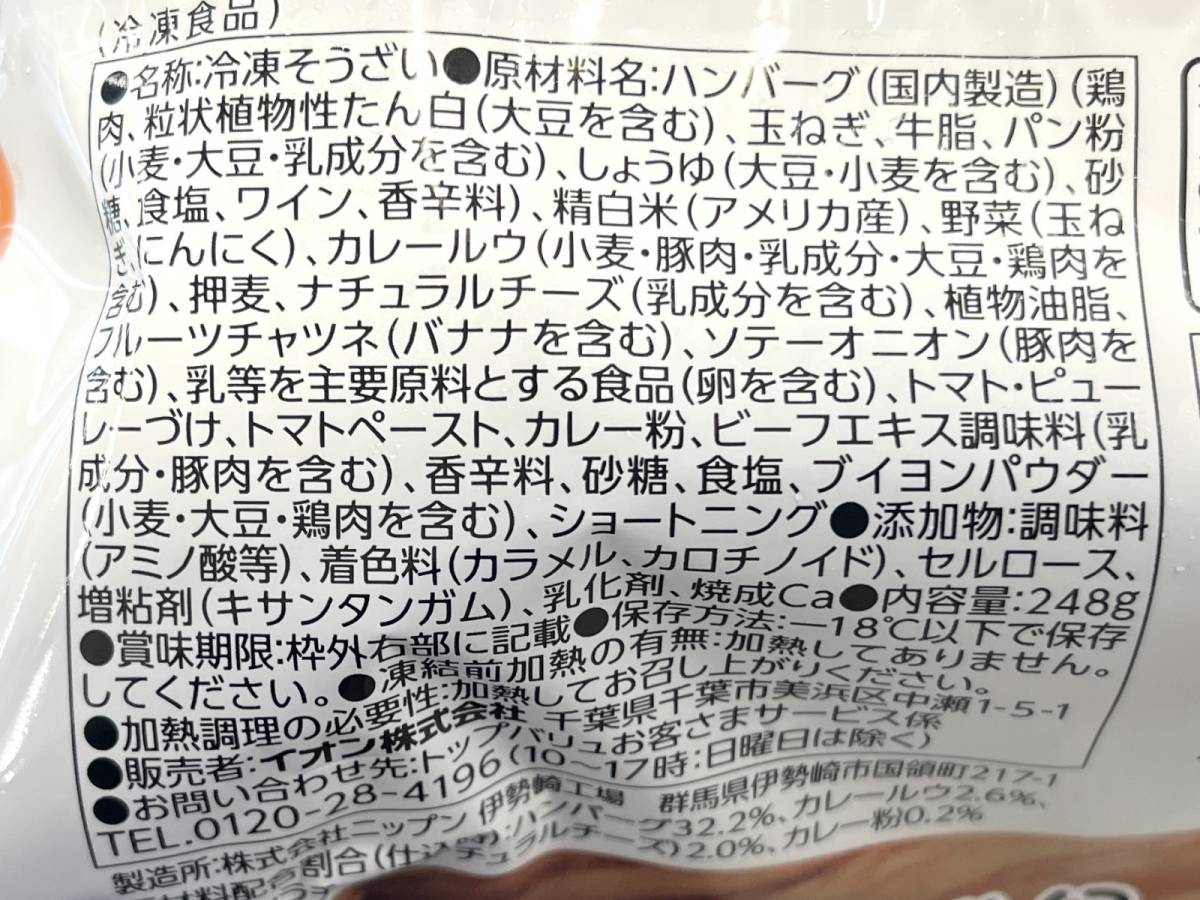 (冷凍食品)
●名称:冷凍そうざい●原材料名:ハンバーグ(国内製造)(鶏
肉、粒状植物性たん白(大豆を含む)、玉ねぎ、牛脂、パン粉
(小麦・大豆・乳成分を含む)、しょうゆ(大豆・小麦を含む)、砂
糖、食塩、ワイン、香辛料)、精白米(アメリカ産)、野菜(玉ね
ぎ、にんにく)、カレールウ(小麦・豚肉・乳成分・大豆・鶏肉を
含む)、押麦、ナチュラルチーズ(乳成分を含む)、植物油脂、
フルーツチャツネ(バナナを含む)、ソテーオニオン(豚肉を
含む)、乳等を主要原料とする食品(卵を含む)、トマト・ピュー
レーづけ、トマトペースト、カレー粉、ビーフエキス調味料(乳
成分・豚肉を含む)、香辛料、砂糖、食塩、ブイヨンパウダー
(小麦・大豆・鶏肉を含む)、ショートニング●添加物:調味料
(アミノ酸等)、着色料(カラメル、カロチノイド)、セルロース、
増粘剤(キサンタンガム)、乳化剤、焼成Ca●内容量:248g
●賞味期限:枠外右部に記載●保存方法:-18℃以下で保存
してください。●凍結前加熱の有無:加熱してありません。
●加熱調理の必要性:加熱してお召し上がりください。
●販売者:イオン株式会社 千葉県千葉市美浜区中瀬1-5-1
●お問い合わせ先:トップバリュお客さまサービス係
TEL.0120-28-4196(10〜17時:日曜日は除く)
製造所:株式会社ニップン 伊勢崎工場 群馬県伊勢崎市国領町217-1
割合(仕込時):ハンバーグ32.2%、カレールウ2.6%、
ナチュラルチーズ)2.0%、カレー粉0.2%